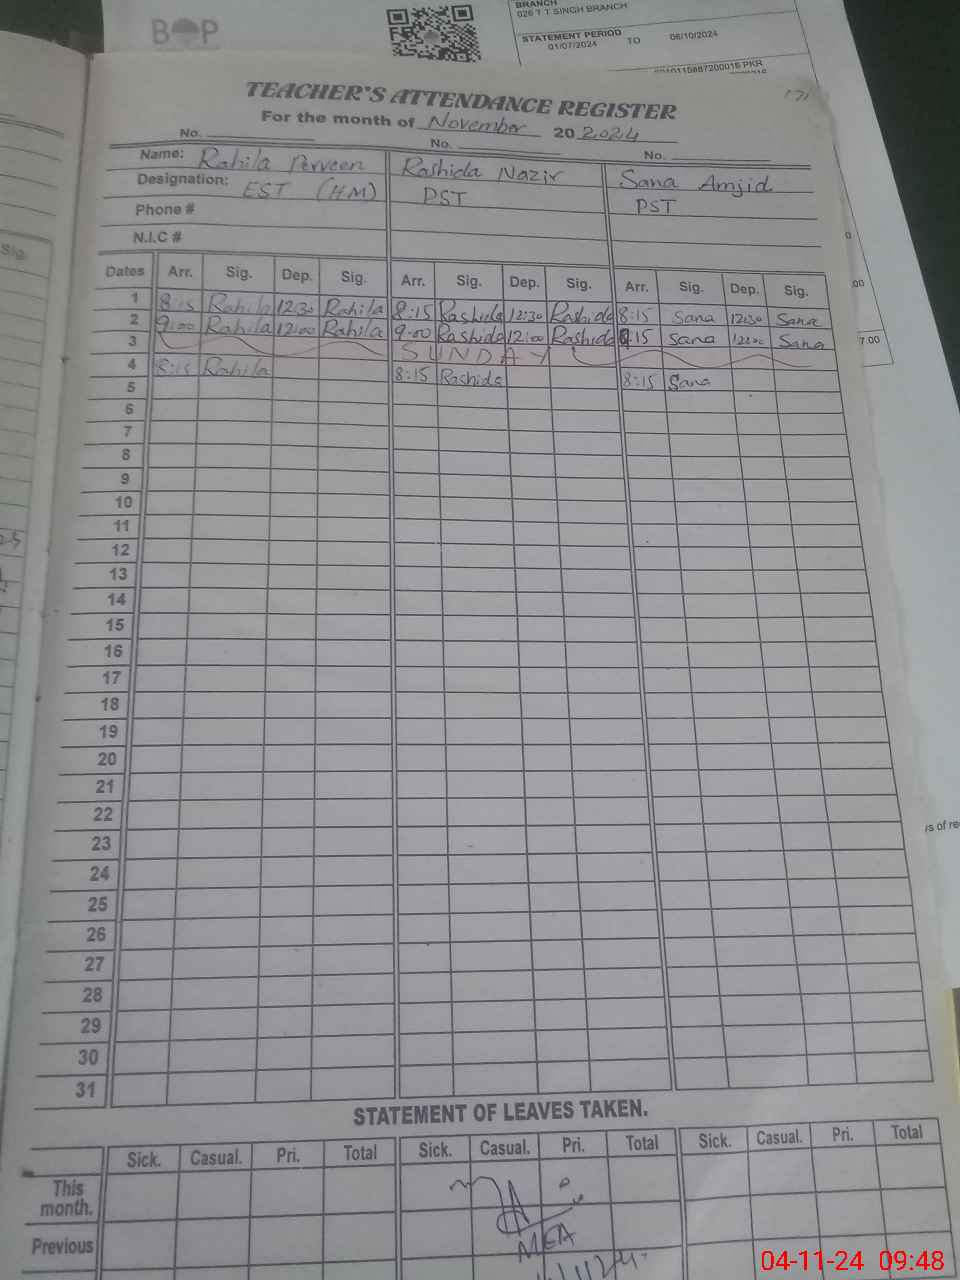 BOP
BRANCH
026 T T SINGH BRANCH
STATEMENT PERIOD
01/07/2024 TO 06/10/2024
171
TEACHER'S ATTENDANCE REGISTER
For the month of November 20 2024
No. No. No.
Name: Rahila Perveen Rashida Nazir Sana Amjid
Designation: EST (HM) PST PST
Phone #
N.I.C #
Sig.
Dates Arr. Sig. Dep. Sig. Arr. Sig. Dep. Sig. Arr. Sig. Dep. Sig.
1 8:15 Rahila 12:30 Rahila 8:15 Rashida 12:30 Rashida 8:15 Sana 12:30 Sana
2 9:00 Rahila 12:00 Rahila 9:00 Rashida 12:00 Rashida 9:15 Sana 12:00 Sana
3 SUNDAY
4 8:15 Rahila 8:15 Rashida 8:15 Sana
5
6
7
8
9
10
11
12
13
14
15
16
17
18
19
20
21
22
23
24
25
26
27
28
29
30
31
STATEMENT OF LEAVES TAKEN.
Sick. Casual. Pri. Total Sick. Casual. Pri. Total Sick. Casual. Pri. Total
This month.
Previous
MEA
04-11-24 09:48